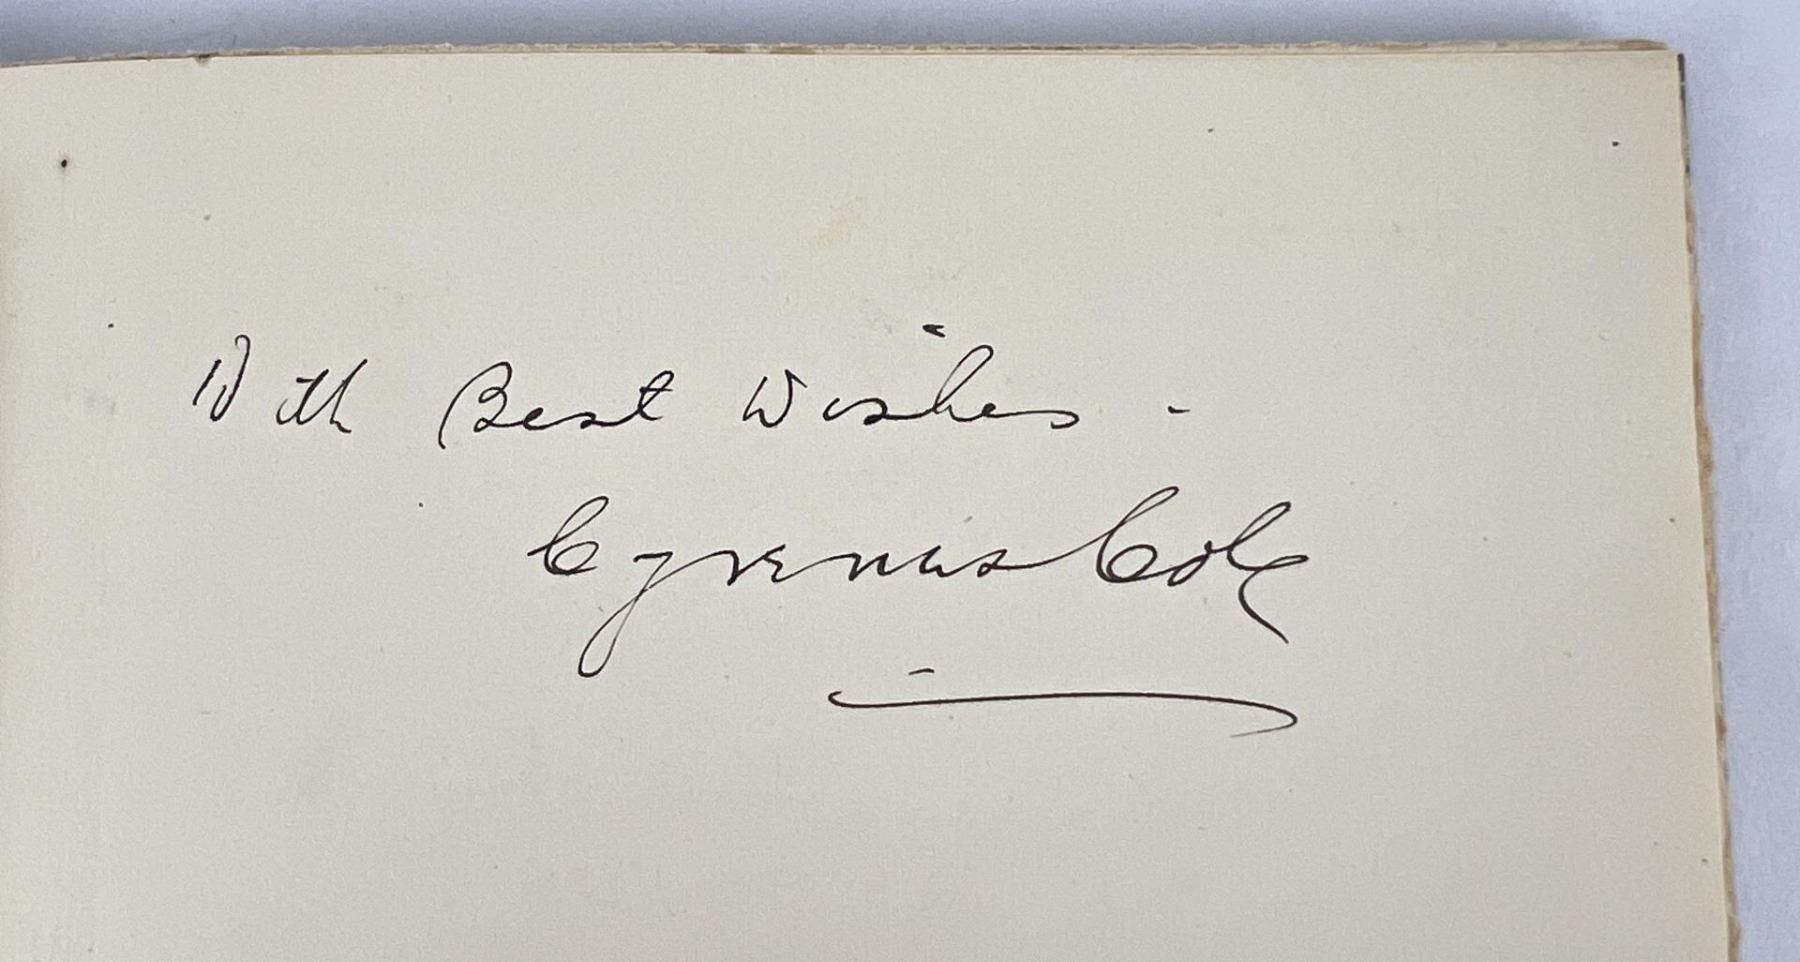 With Best Wishes -
Cyrenus Cole